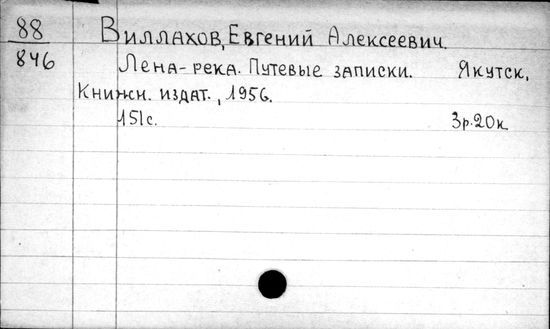 88 Виллахов, Евгений Алексеевич.
846 Лена-река. Путевые записки. Якутск,
Книжн. издат., 1956.
151с. 3р.20к